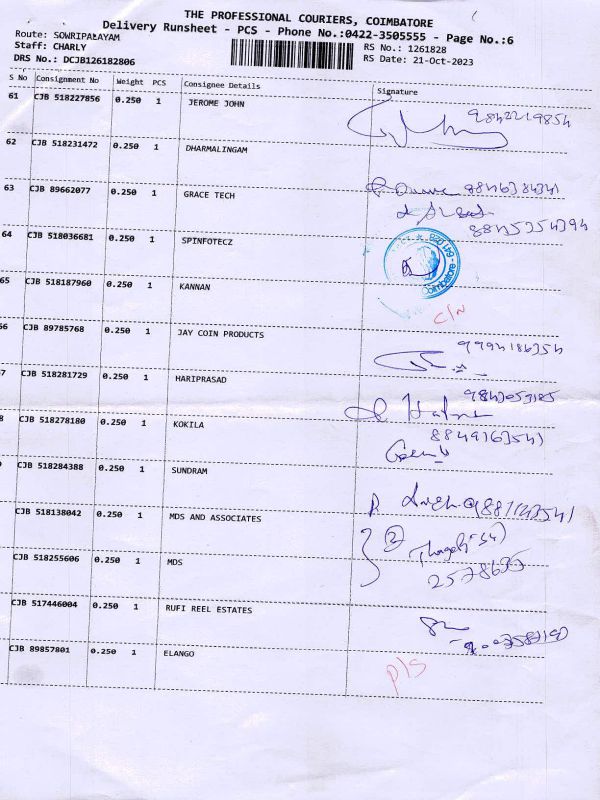 THE PROFESSIONAL COURIERS, COIMBATORE
Delivery Runsheet - PCS - Phone No.:0422-3505555 - Page No.:6
Route: SOWRIPALAYAM
Staff: CHARLY
RS No.: 1261828
DRS No.: DCJB126182806
RS Date: 21-Oct-2023
S No Consignment No Weight PCS Consignee Details Signature
61 CJB 518227856 0.250 1 JEROME JOHN 9842219854
62 CJB 518231472 0.250 1 DHARMALINGAM
63 CJB 89662077 0.250 1 GRACE TECH
64 CJB 518036681 0.250 1 SPINFOTECZ
Coimbatore - 641 028
65 CJB 518187960 0.250 1 KANNAN C/N
66 CJB 89785768 0.250 1 JAY COIN PRODUCTS 9994186354
7 CJB 518281729 0.250 1 HARIPRASAD
8 CJB 518278180 0.250 1 KOKILA 8849163541
CJB 518284388 0.250 1 SUNDRAM
CJB 518138042 0.250 1 MDS AND ASSOCIATES
CJB 518255606 0.250 1 MDS 2578635
CJB 517446004 0.250 1 RUFI REEL ESTATES
CJB 89857801 0.250 1 ELANGO P/S